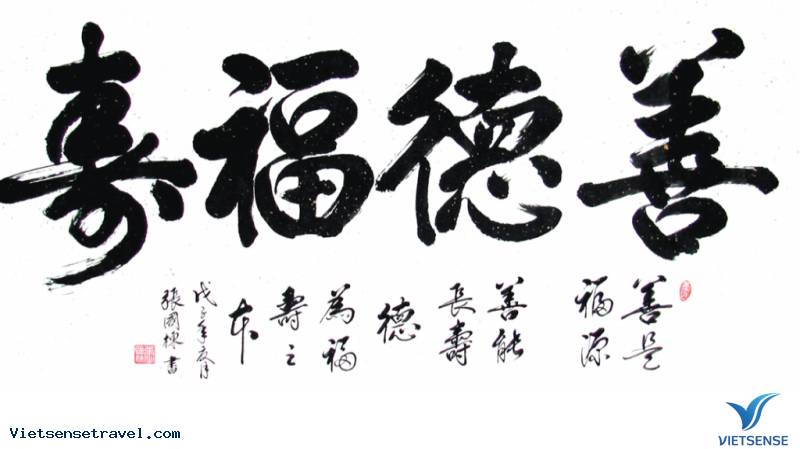 善德福寿
善是
福源
善能
長壽
德
為福
壽之
本
戊子年夏月
張國棟書
Vietsensetravel.com
VIETSENSE